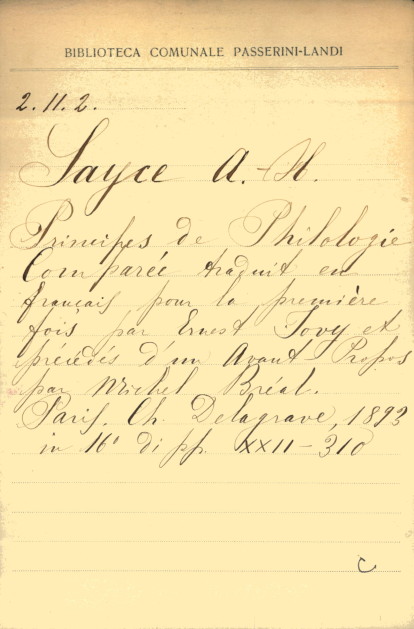 BIBLIOTECA COMUNALE PASSERINI-LANDI
2. 11. 2.
Sayce A.-H.
Principes de Philologie
Comparée traduit en
français, pour la première
fois par Ernest Jovy et
précédés d'un Avant Propos
par Michel Bréal.
Paris. Ch. Delagrave, 1893
in 16° di pp. XXII-310
C